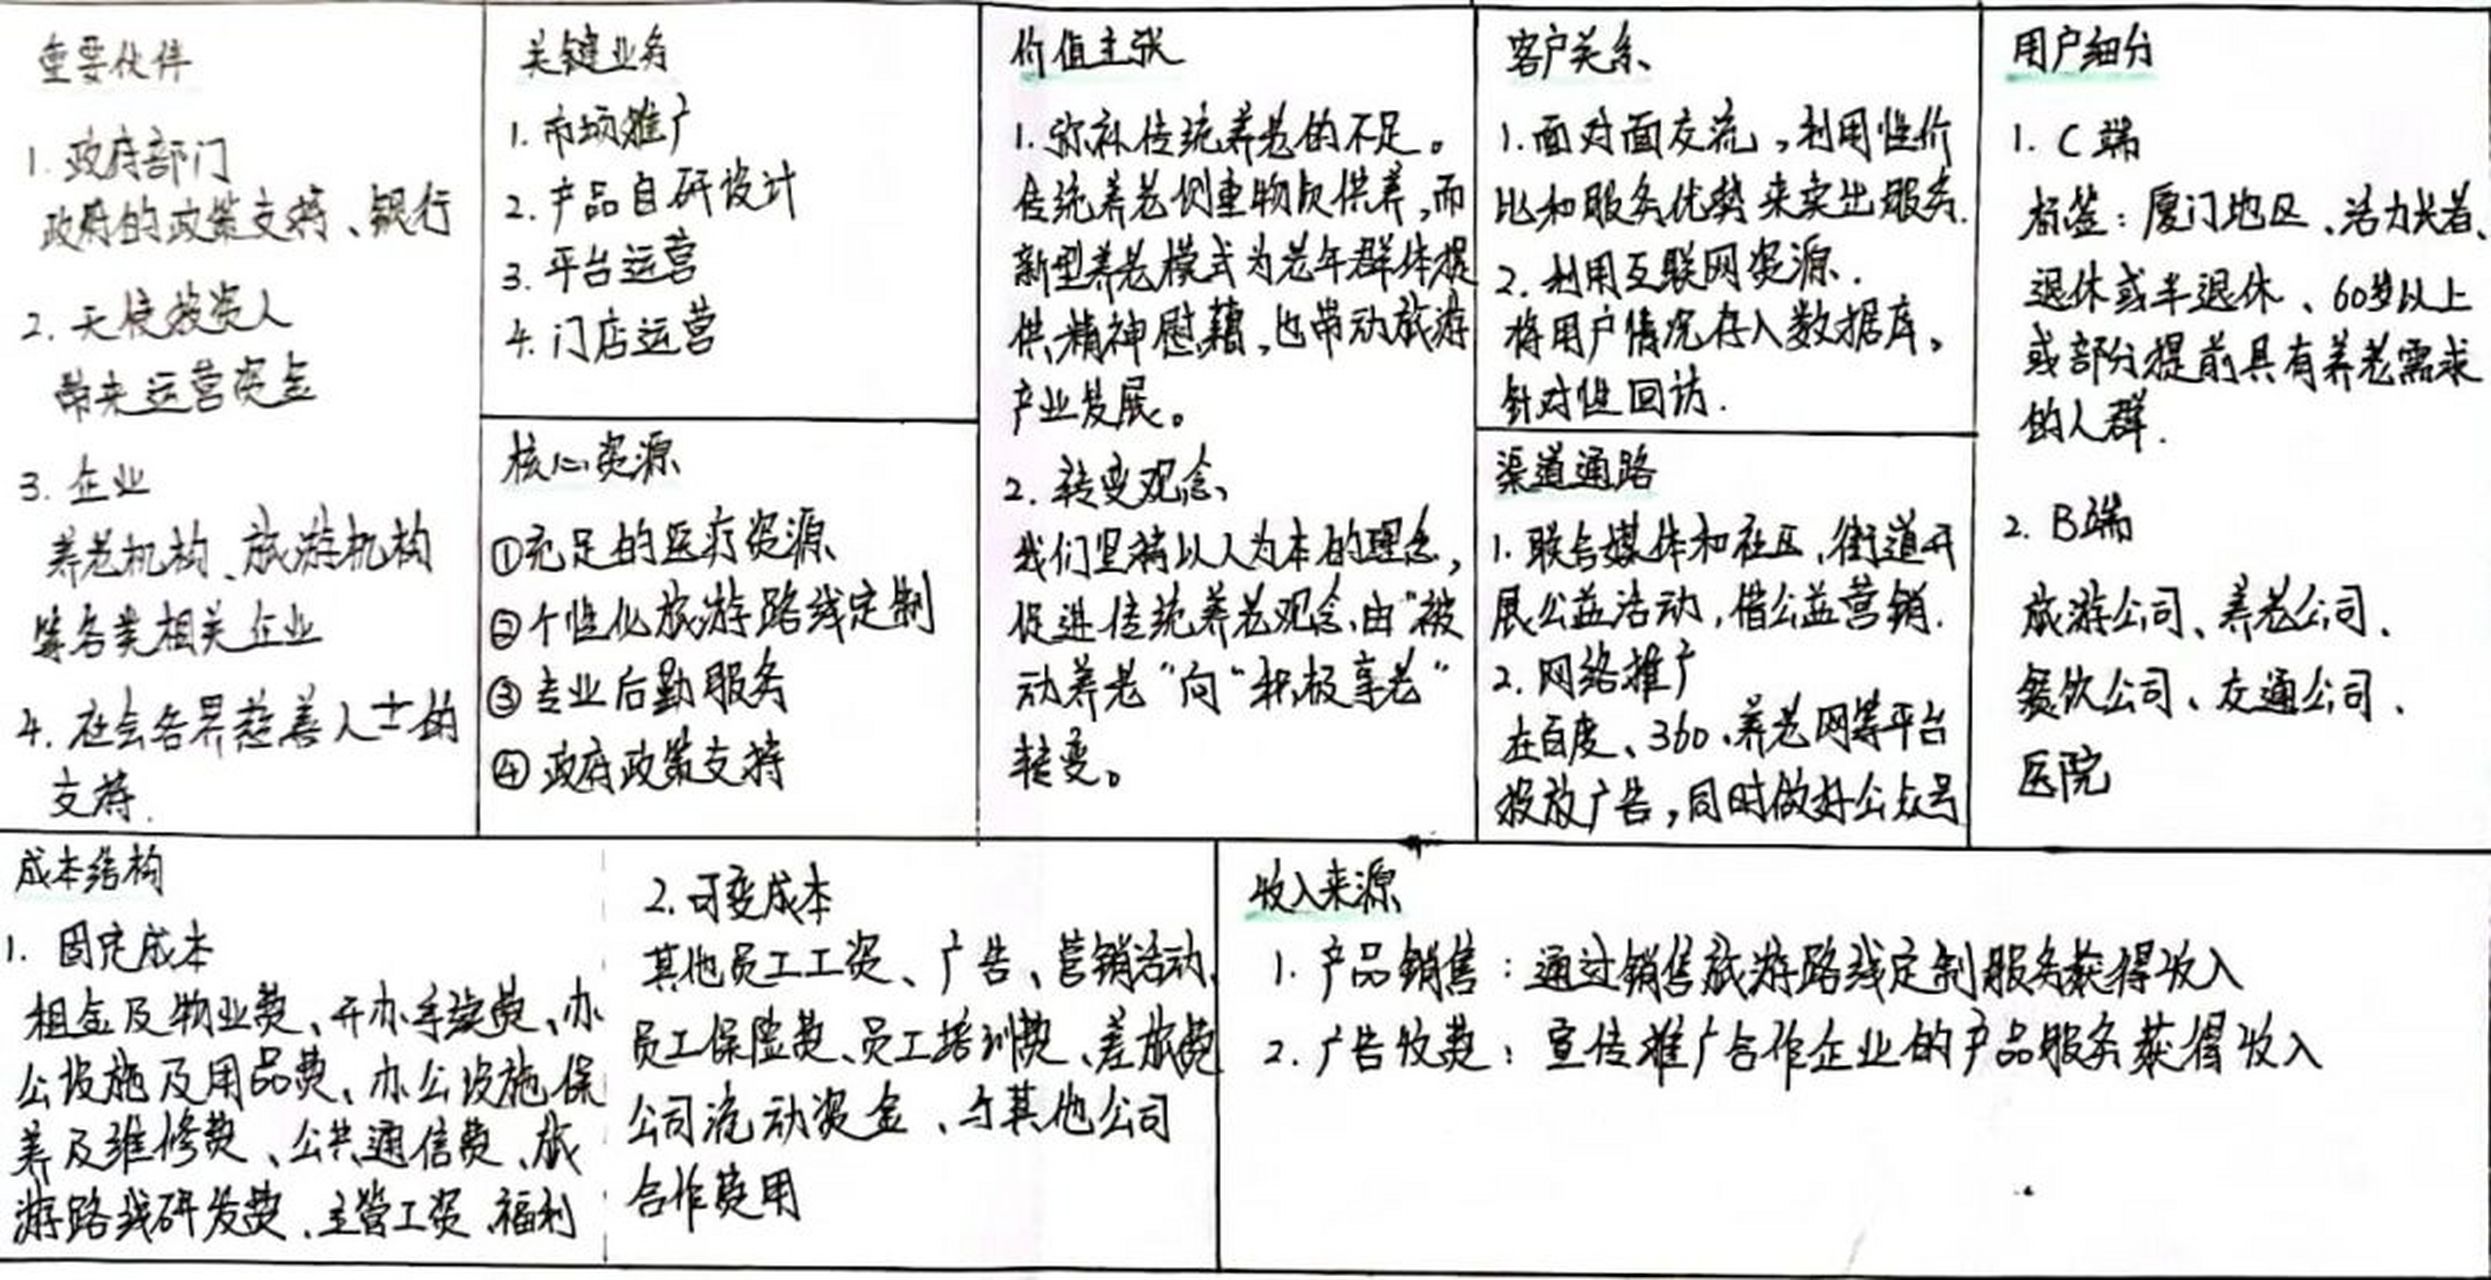 重要伙伴
1. 政府部门
政府的政策支持、银行
2. 天使投资人
带来运营资金
3. 企业
养老机构、旅游机构
等各类相关企业
4. 社会各界慈善人士的
支持.
关键业务
1. 市场推广
2. 产品自研设计
3. 平台运营
4. 门店运营
核心资源
①充足的医疗资源
②个性化旅游路线定制
③专业后勤服务
④政府政策支持
价值主张
1. 弥补传统养老的不足。
传统养老侧重物质供养,而
新型养老模式为老年群体提
供精神慰藉,也带动旅游
产业发展。
2. 转变观念
我们坚持以人为本的理念,
促进传统养老观念由“被
动养老”向“积极享老”
转变。
客户关系
1.面对面交流,利用性价
比和服务优势来卖出服务.
2. 利用互联网资源.
将用户情况存入数据库,
针对性回访.
渠道通路
1. 联合媒体和社区,街道开
展公益活动,借公益营销.
2. 网络推广
在百度、360、养老网等平台
投放广告,同时做好公众号
用户细分
1. C端
标签:厦门地区、活力长者、
退休或半退休、60岁以上
或部分提前具有养老需求
的人群.
2. B端
旅游公司、养老公司、
餐饮公司、交通公司、
医院
成本结构
1. 固定成本
租金及物业费、开办手续费、办
公设施及用品费、办公设施保
养及维修费、公共通信费、旅
游路线研发费、主管工资、福利
2. 可变成本
其他员工工资、广告、营销活动、
员工保险费、员工培训费、差旅费
公司流动资金、与其他公司
合作费用
收入来源
1. 产品销售:通过销售旅游路线定制服务获得收入
2. 广告收费:宣传推广合作企业的产品服务获得收入